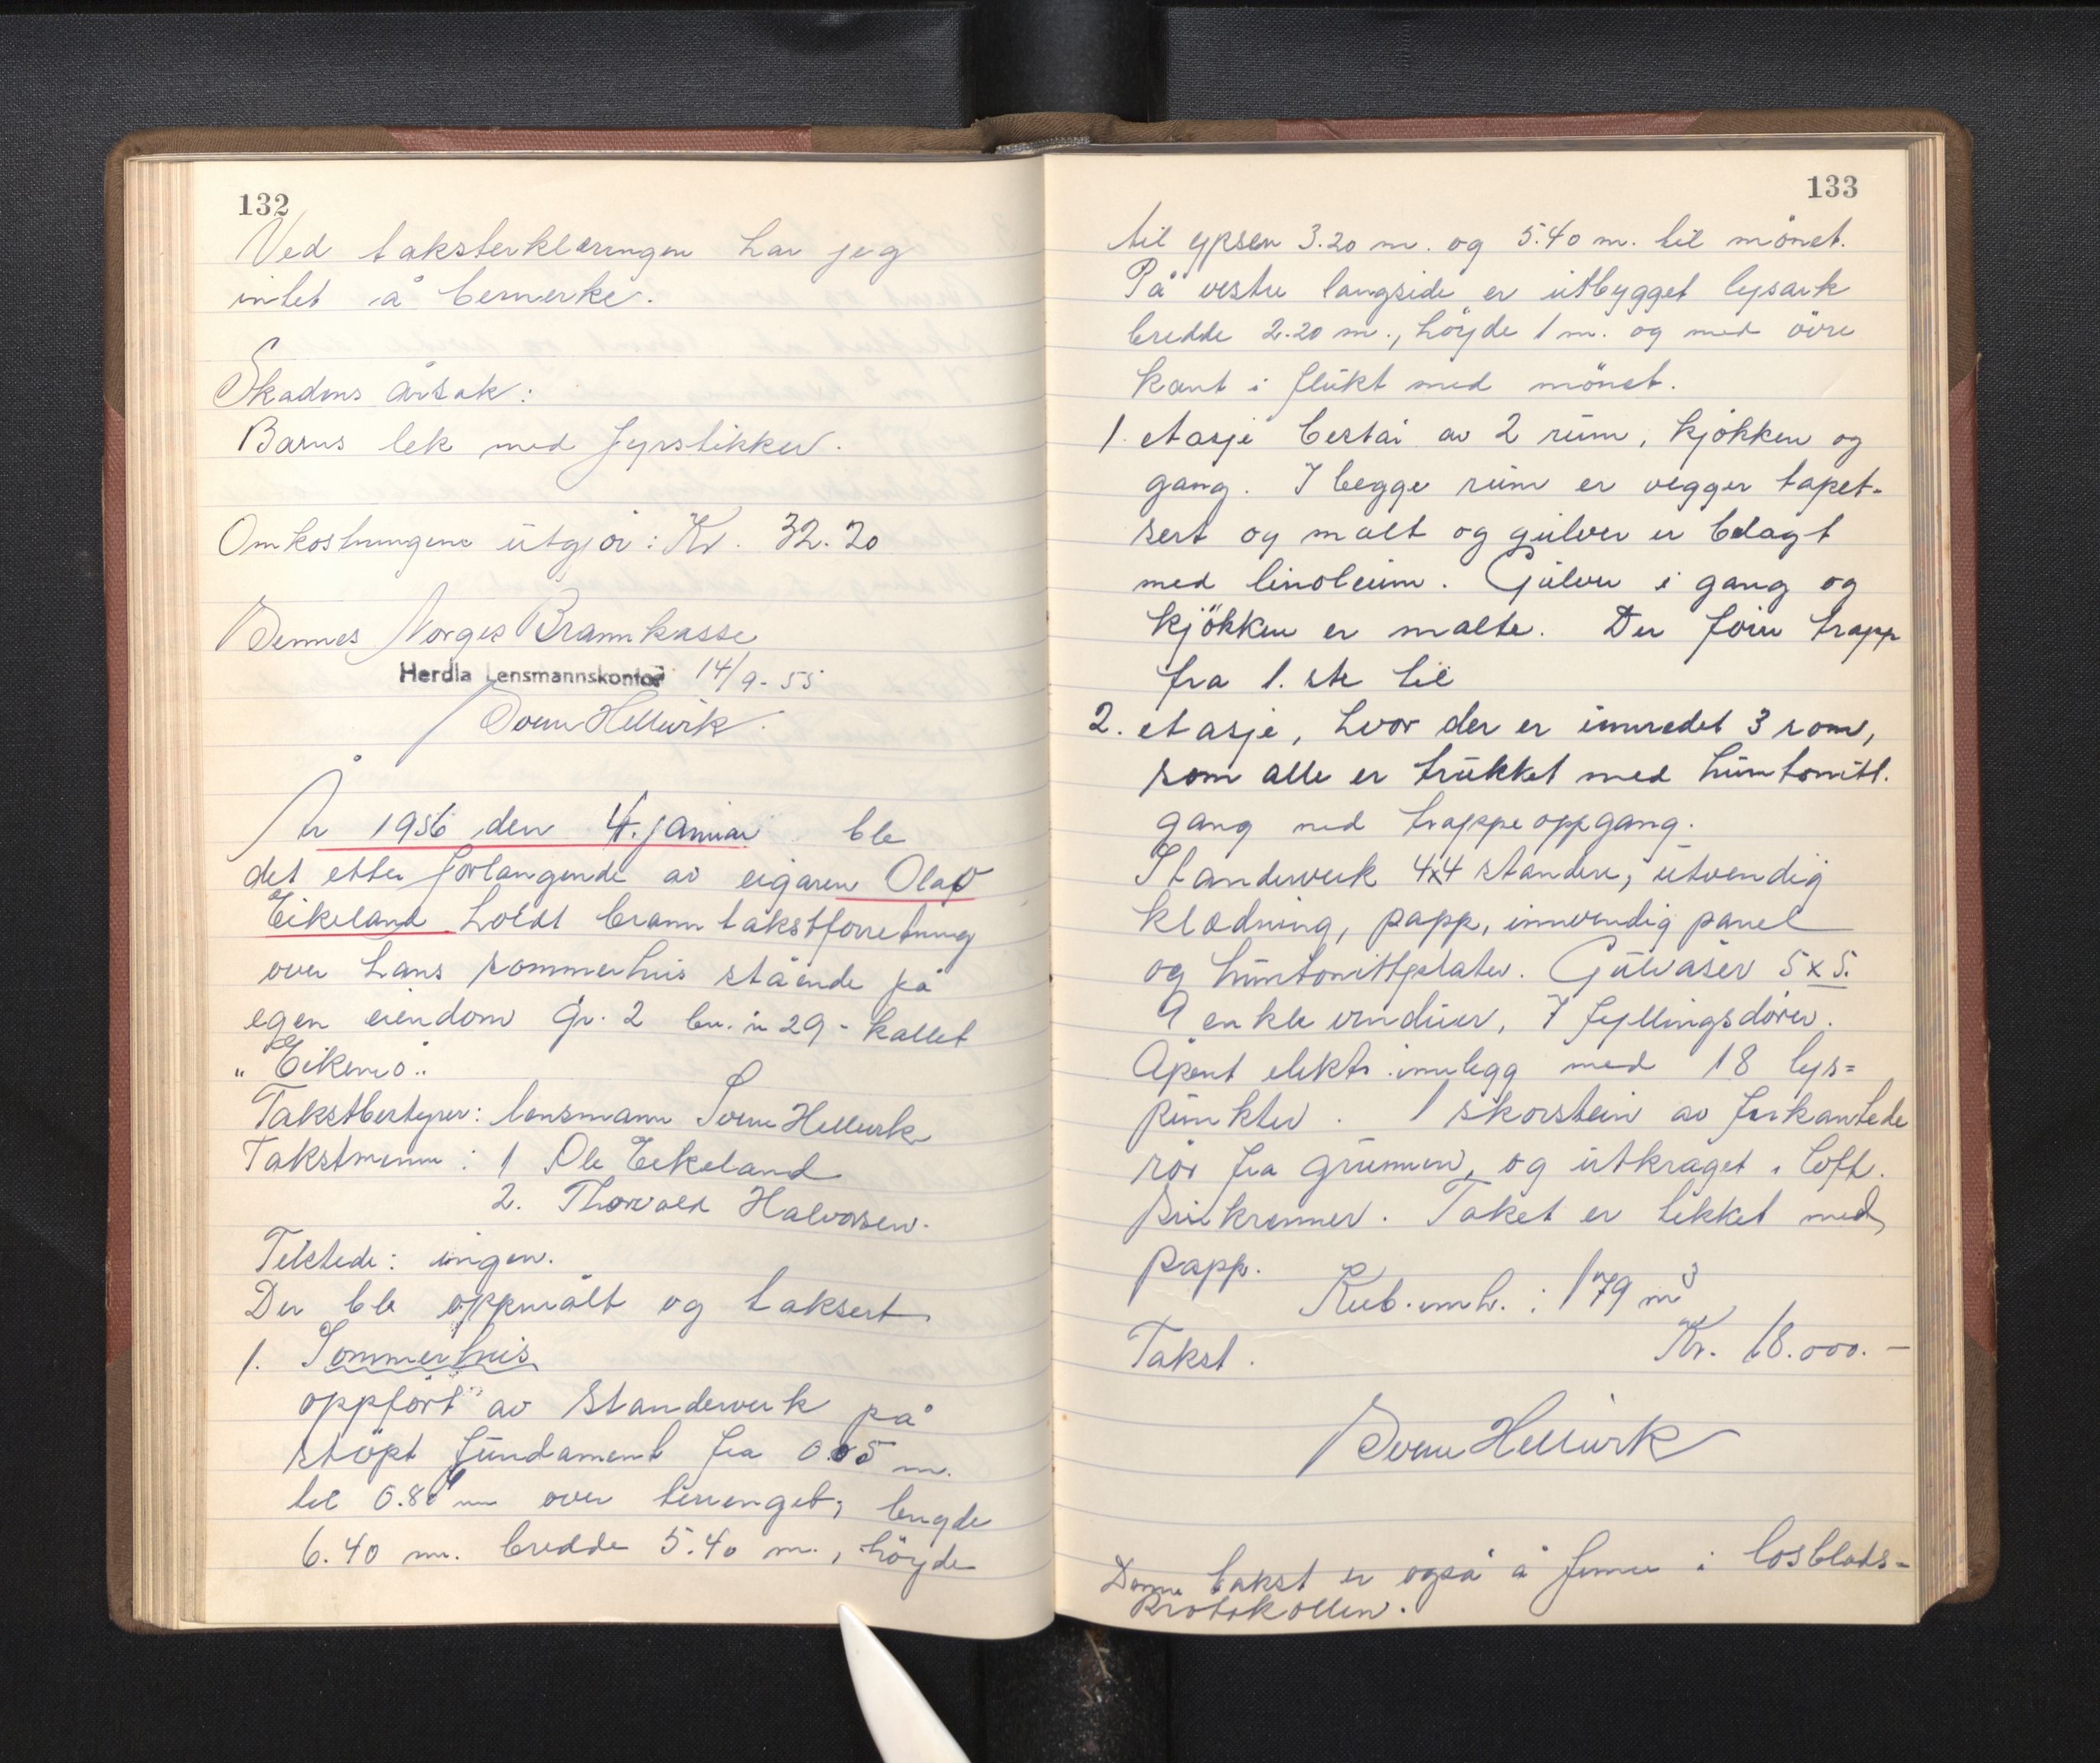 132
Ved taksterklæringen har jeg
intet å bemerke.
Skadens årsak:
Barns lek med fyrstikker.
Omkostningene utgjør: Kr. 32.20
Sennes Norges Brannkasse
Herdla Lensmannskontor 14/9-55
Svein Hellvik
År 1956 den 4. januar ble
det etter forlangende av eigaren Olav
Eikeland holdt branntakstforretning
over hans sommerhus stående på
egen eiendom Gr. 2 br.nr 29 - kallet
"Eikemo".
Takstbestyrer: lensmann Svein Hellvik
Takstmenn: 1 Ole Eikeland
2. Thorvald Halvorsen.
Tilstede: ingen.
Der ble oppmålt og taksert
1. Sommerhus
oppført av standerverk på
støpt fundament fra 0.05 m.
til 0.80 m over terrenget, lengde
6.40 m. bredde 5.40 m., höyde
133
til gpsen 3.20 m. og 5.40 m. til mönet.
På vestre langside er utbygget lysark
bredde 2.20 m., höyde 1 m. og med övre
kant i flukt med mönet.
1. etasje består av 2 rum, kjökken og
gang. I begge rum er vegger tapet-
sert og malt og gulver er belagt
med linoleum. Gulver i gang og
kjökken er malte. Der förer trapp
fra 1. ste til
2. etasje, hvor der er innredet 3 rom,
som alle er trukket med huntonitt.
gang med trappeoppgang.
Standerverk 4x4 standere, utvendig
kledning, papp, innvendig panel
og huntonittplater. Gulvåser 5x5.
9 enkle vinduer, 7 fyllingsdörer.
Åpent elektr. innlegg med 18 lys=
punkter. 1 skorstein av firkantede
rör fra grunnen, og utkraget i loft.
Sinkrenner. Taket er tekket med
papp.
Kub. innh.: 179 m3
Takst. Kr. 18.000.-
Svein Hellvik
Denne takst er også å finne i losblads-
Protokollen.